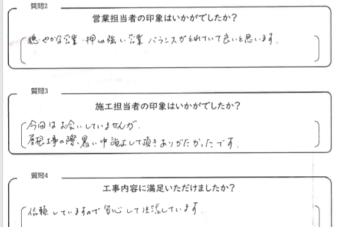 質問2
営業担当者の印象はいかがでしたか?
穏やかな営業、押の強い営業 バランスがとれていて良いと思います。
質問3
施工担当者の印象はいかがでしたか?
今回はお会いしていませんが、
屋根工事の際、暑い中施工して頂きありがたかったです。
質問4
工事内容に満足いただけましたか?
信頼していますので安心して生活しています。